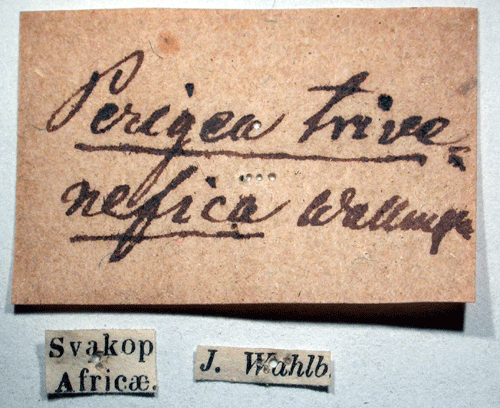 Perigea trive=
nefica Wallengr
Svakop
Africæ.
J. Wahlb.